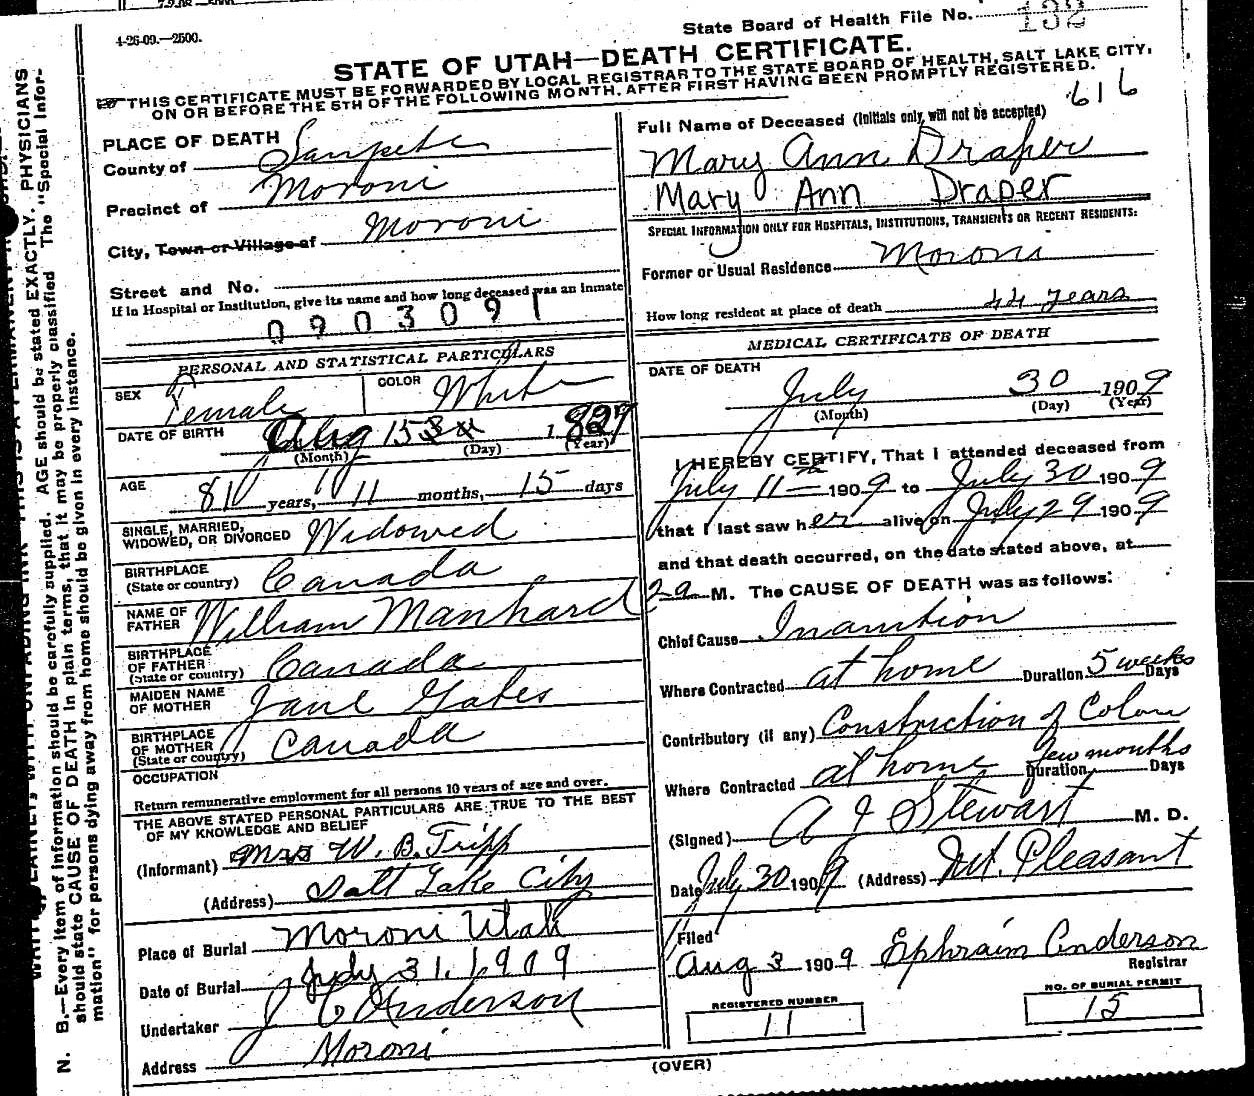 4-26-09.—2500.
State Board of Health File No. 132
STATE OF UTAH—DEATH CERTIFICATE.
THIS CERTIFICATE MUST BE FORWARDED BY LOCAL REGISTRAR TO THE STATE BOARD OF HEALTH, SALT LAKE CITY,
ON OR BEFORE THE 5TH OF THE FOLLOWING MONTH, AFTER FIRST HAVING BEEN PROMPTLY REGISTERED.
616
PLACE OF DEATH
County of Sanpete
Precinct of Moroni
City, Town or Village of Moroni
Street and No.
If in Hospital or Institution, give its name and how long deceased was an inmate
0903091
PERSONAL AND STATISTICAL PARTICULARS
SEX Female COLOR White
DATE OF BIRTH Aug 15 1829
(Month) (Day) (Year)
AGE 81 years, 11 months, 15 days
SINGLE, MARRIED,
WIDOWED, OR DIVORCED Widowed
BIRTHPLACE
(State or country) Canada
NAME OF
FATHER William Manhard
BIRTHPLACE
OF FATHER
(State or country) Canada
MAIDEN NAME
OF MOTHER Jane Gates
BIRTHPLACE
OF MOTHER
(State or country) Canada
OCCUPATION
Return remunerative employment for all persons 10 years of age and over.
THE ABOVE STATED PERSONAL PARTICULARS ARE TRUE TO THE BEST
OF MY KNOWLEDGE AND BELIEF
(Informant) Mrs W. B. Tripp
(Address) Salt Lake City
Place of Burial Moroni Utah
Date of Burial July 31. 1909
Undertaker J C Anderson
Address Moroni
Full Name of Deceased (Initials only, will not be accepted)
Mary Ann Draper
Mary Ann Draper
SPECIAL INFORMATION ONLY FOR HOSPITALS, INSTITUTIONS, TRANSIENTS OR RECENT RESIDENTS:
Former or Usual Residence Moroni
How long resident at place of death 44 years
MEDICAL CERTIFICATE OF DEATH
DATE OF DEATH
July 30 1909
(Month) (Day) (Year)
I HEREBY CERTIFY, That I attended deceased from
July 11th 1909 to July 30 1909
that I last saw her alive on July 29 1909
and that death occurred, on the date stated above, at
2 a M. The CAUSE OF DEATH was as follows:
Chief Cause Inanition
Where Contracted at home Duration 5 weeks Days
Contributory (if any) Constriction of Colon
Where Contracted at home Duration few months Days
(Signed) A J Stewart M. D.
Date July 30 1909 (Address) Mt. Pleasant
Filed
Aug 3 1909 Ephraim Anderson
Registrar
REGISTERED NUMBER
11
NO. OF BURIAL PERMIT
15
(OVER)
N. B.—Every item of information should be carefully supplied. AGE should be stated EXACTLY. PHYSICIANS
should state CAUSE OF DEATH in plain terms, that it may be properly classified The "Special Infor-
mation" for persons dying away from home should be given in every instance.